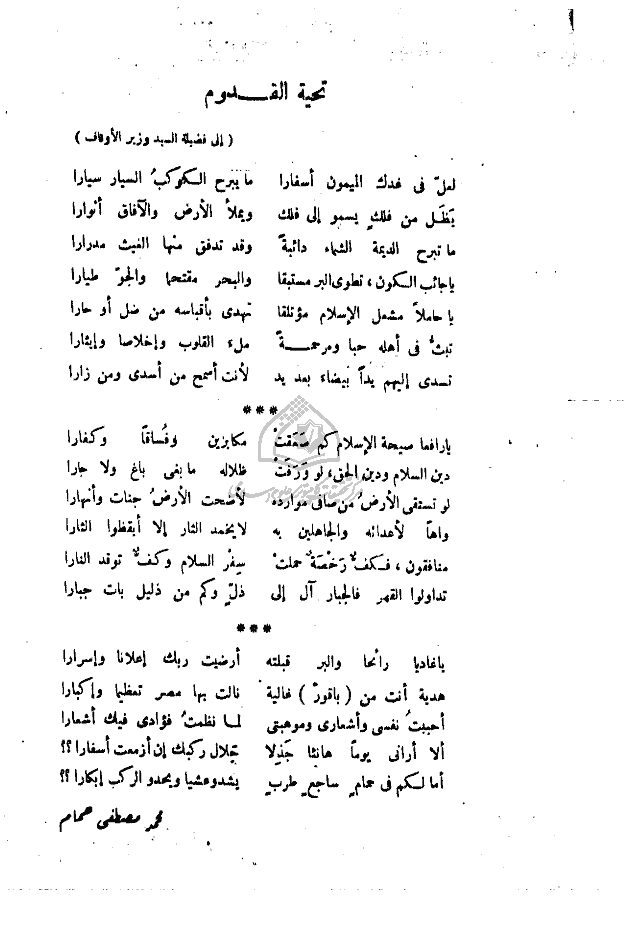 تحية القـــدوم
( إلى فضيلة السيد وزير الأوقاف )
لعلّ فى غدك الميمون أسفارا ما يبرح الكوكبُ السيار سيارا
يَظَل من فلكٍ يسمو إلى فلك ويملأ الأرض والآفاق أنوارا
ما تبرح الديمة الشماء دائبةً وقد تدفق منها الغيث مدرارا
يا جائب الكون ، تطوى البر مستبقا والبحر مقتحما والجوّ طيارا
يا حاملاً مشعل الإسلام مؤتلقا تهدى بأقباسه من ضل أو حارا
تبثُّ فى أهله حبا ومرحمــةً ملء القلوب وإخلاصا وإيثارا
تسدى إليهم يداً بيضاء بعد يد لأنت أسمح من أسدى ومن زارا
***
يارافعا صيحة الإسلام كم صَعَقتْ مكابرين وفُساقًا وكفارا
دين السلام ودين الحق ، لو وَرَفَتْ ظلاله ما بغى باغ ولا جارا
لو تستقى الأرضُ من صافى موارده لأضحت الأرضُ جنات وأنهارا
واهاً لأعدائه والجاهلين به لايخمد الثار إلا أيقظوا الثارا
منافقون ، فكفٌّ رَخْصَةٌ حملتْ سِفْر السلام وكفٌّ توقد النارا
تداولوا القهر فالجبار آل إلى ذلٍّ وكم من ذليل بات جبارا
***
ياغاديا رائحا والبر قبلته أرضيت ربك إعلانا وإسرارا
هدية أنت من ( باقور ) غالية نالت بها مصر تعظيما وإكبارا
أحببتُ نفسى وأشعارى وموهبتى لما نظمتُ فؤادى فيك أشعارا
ألا أرانى يوماً هانئا جَذِلا خلال ركبك إن أزمعت أسفارا ؟؟
أما لكم فى حمامٍ ساجعٍ طربٍ يشدو عشيا ويحدو الركب إبكارا ؟؟
محمد مصطفى حمام